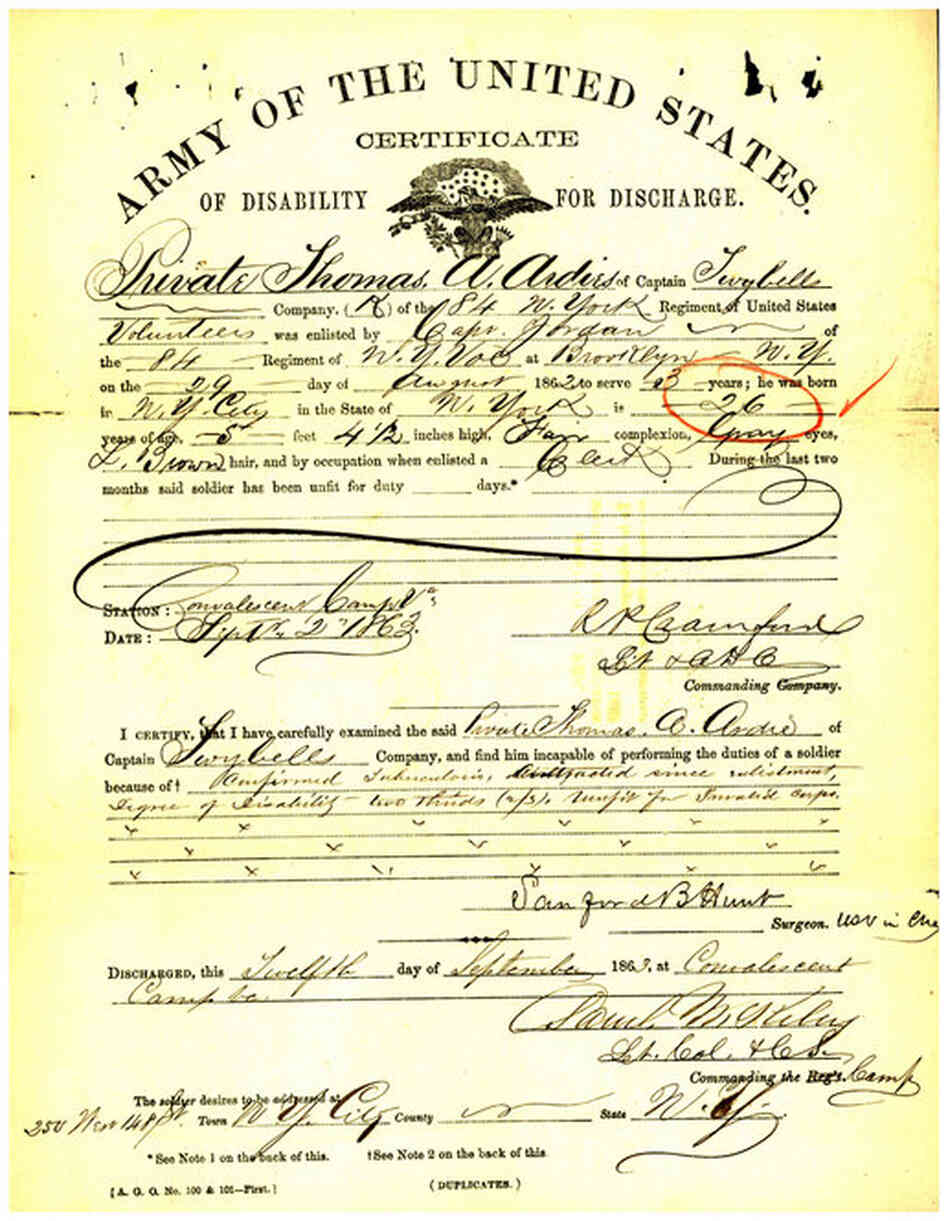 ARMY OF THE UNITED STATES.
CERTIFICATE
OF DISABILITY FOR DISCHARGE.
Private Thomas. A. Ardies of Captain Twybells
Company, (K) of the 84 N. York Regiment of United States
Volunteers was enlisted by Capt. Jordan of
the 84 Regiment of N. Y. Vol at Brooklyn N. Y.
on the 29 day of August 1862 to serve 3 years; he was born
in N. Y. City in the State of N. York is 26
years of age, 5 feet 4 1/2 inches high, Fair complexion, Gray eyes,
L. Brown hair, and by occupation when enlisted a Clerk During the last two
months said soldier has been unfit for duty days.*
STATION: Convalescent Camp Va
DATE: Sept. 2" 1863.
R P Crawford
Lt & A D C
Commanding Company.
I CERTIFY, that I have carefully examined the said Private Thomas. A. Ardie of
Captain Twybells Company, and find him incapable of performing the duties of a soldier
because of† Confirmed Tuberculosis, Contracted since enlistment,
Degree of Disability two thirds (2/3). Unfit for Invalid Corps.
Sanford B Hunt
Surgeon. USV in Chg
DISCHARGED, this Twelfth day of September 1863, at Convalescent
Camp Va
Saml. McKelvy
Lt. Col. & C.S.
Commanding the Reg't. Camp
The soldier desires to be addressed at
250 West 48 St. Town N. Y. City County State N. Y.
*See Note 1 on the back of this. †See Note 2 on the back of this
[A. G. O. No. 100 & 101—First.] (DUPLICATES.)